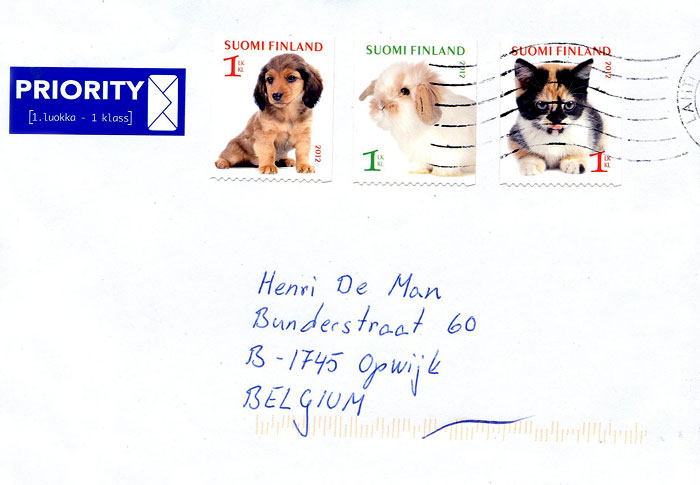 PRIORITY
[1.luokka - 1 klass]
SUOMI FINLAND
1 LK
KL
2012
SUOMI FINLAND
2012
1 LK
KL
SUOMI FINLAND
2012
1 LK
KL
Henri De Man
Bunderstraat 60
B-1745 Opwijk
BELGIUM